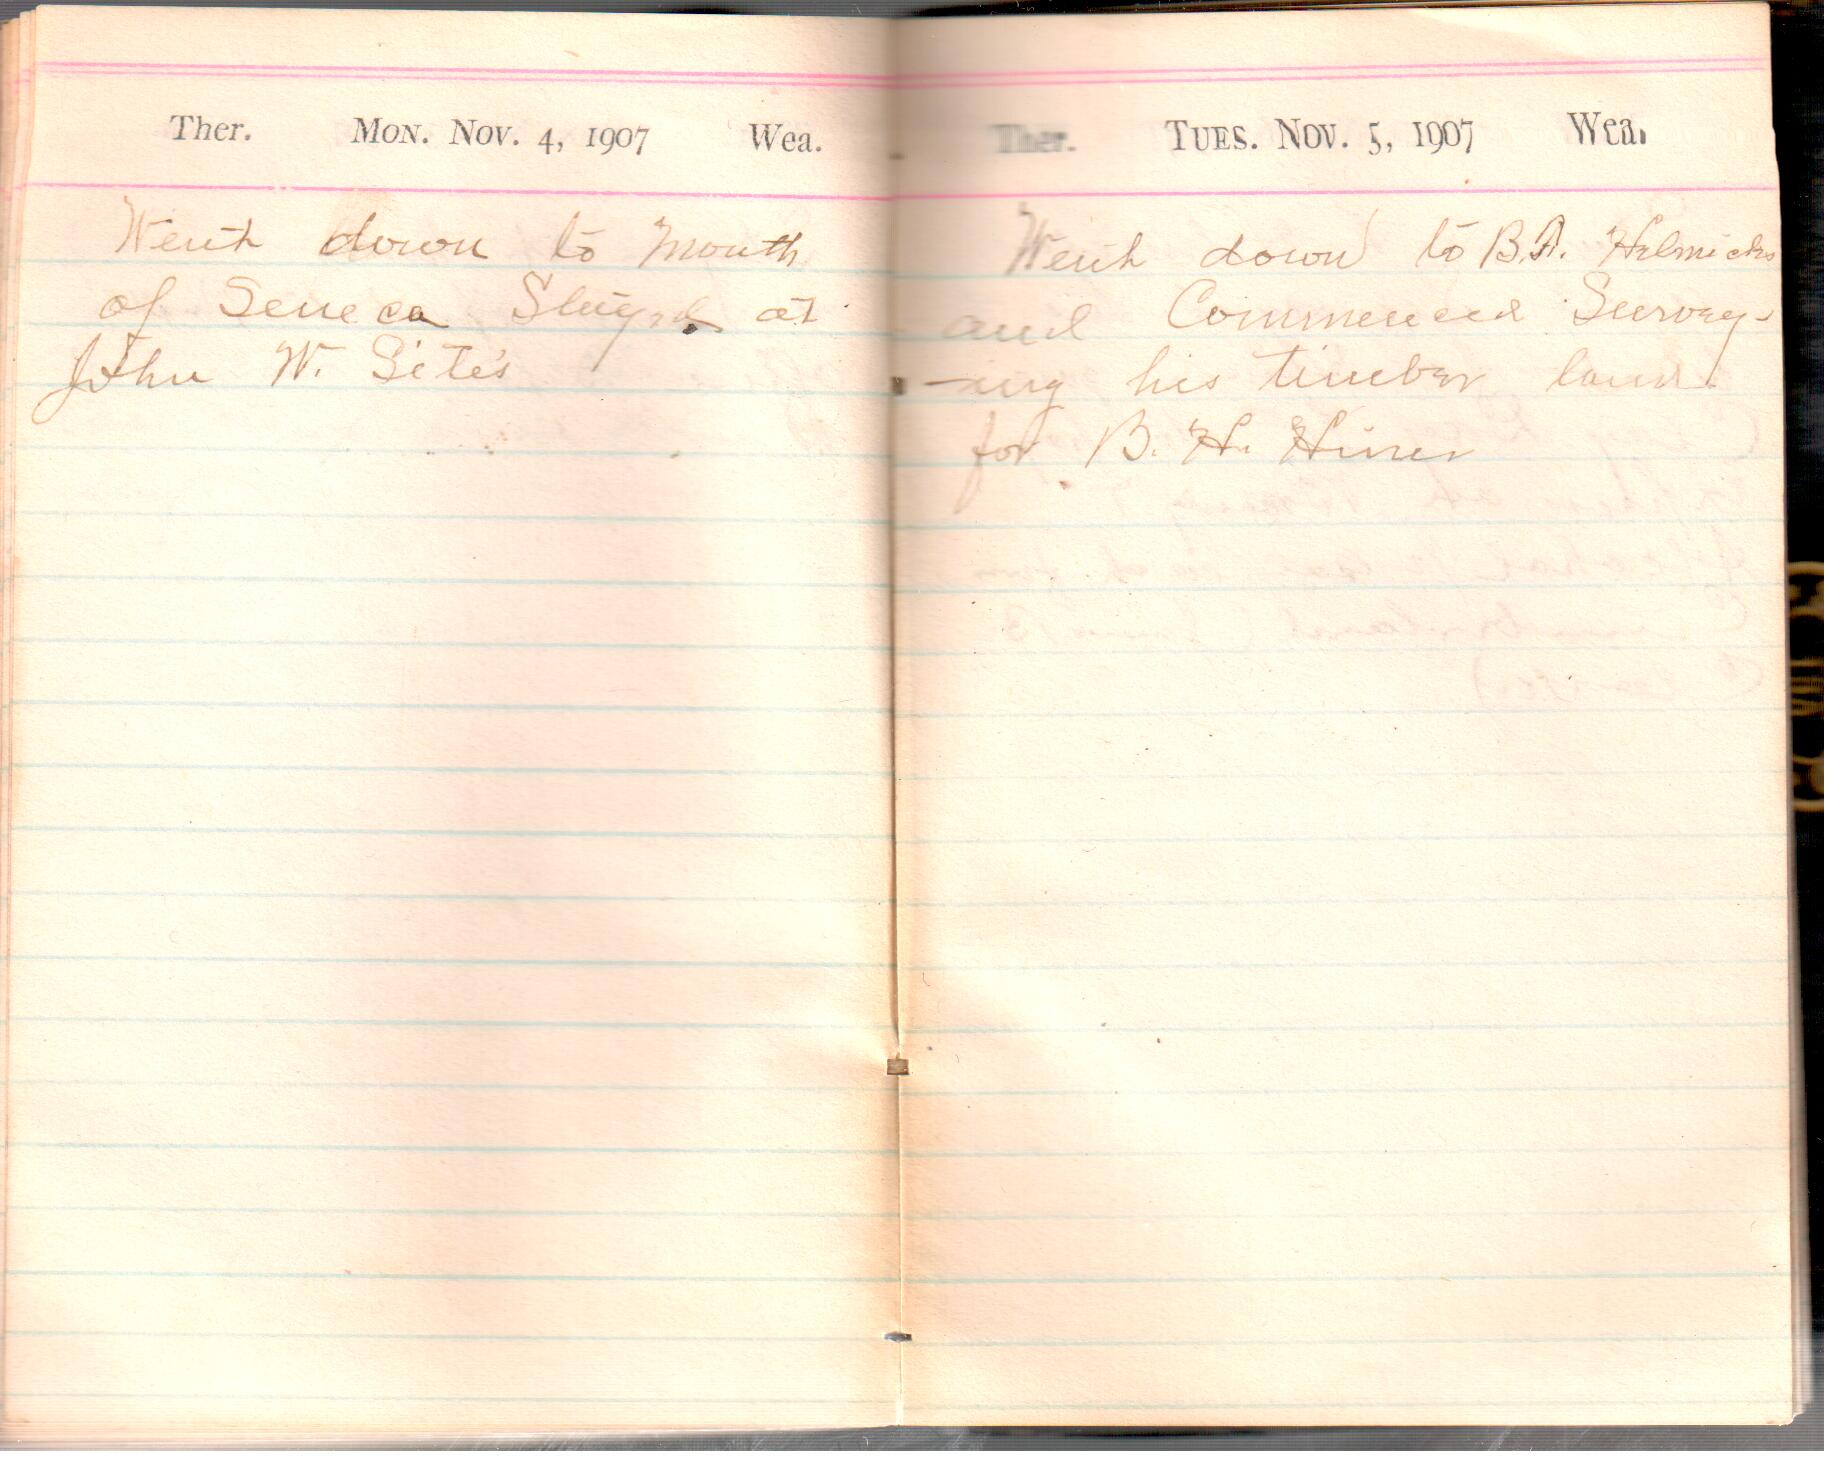 Ther. MON. NOV. 4, 1907 Wea.
Went down to Mouth
of Seneca Stayed at
John W. Sites
Ther. TUES. NOV. 5, 1907 Wea.
Went down to B.A. Helmicks
and Commenced Survey-
-ing his timber land
for B. H. Hiner